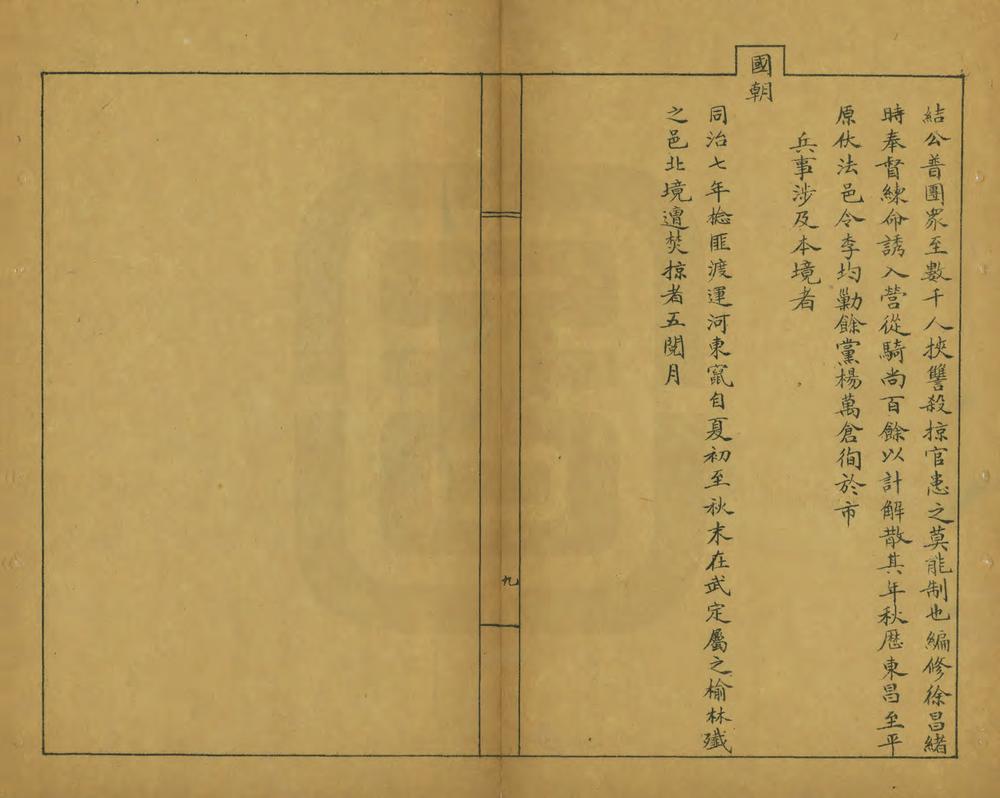 結公普團眾至數千人挾讐殺掠官患之莫能制也編修徐昌緒
時奉督練命誘入營從騎尚百餘以計解散其年秋歷東昌至平
原伏法邑令李均勦餘黨楊萬倉徇於市
兵事涉及本境者
國朝
同治七年捻匪渡運河東竄自夏初至秋末在武定屬之榆林殲
之邑北境遭焚掠者五閱月
九